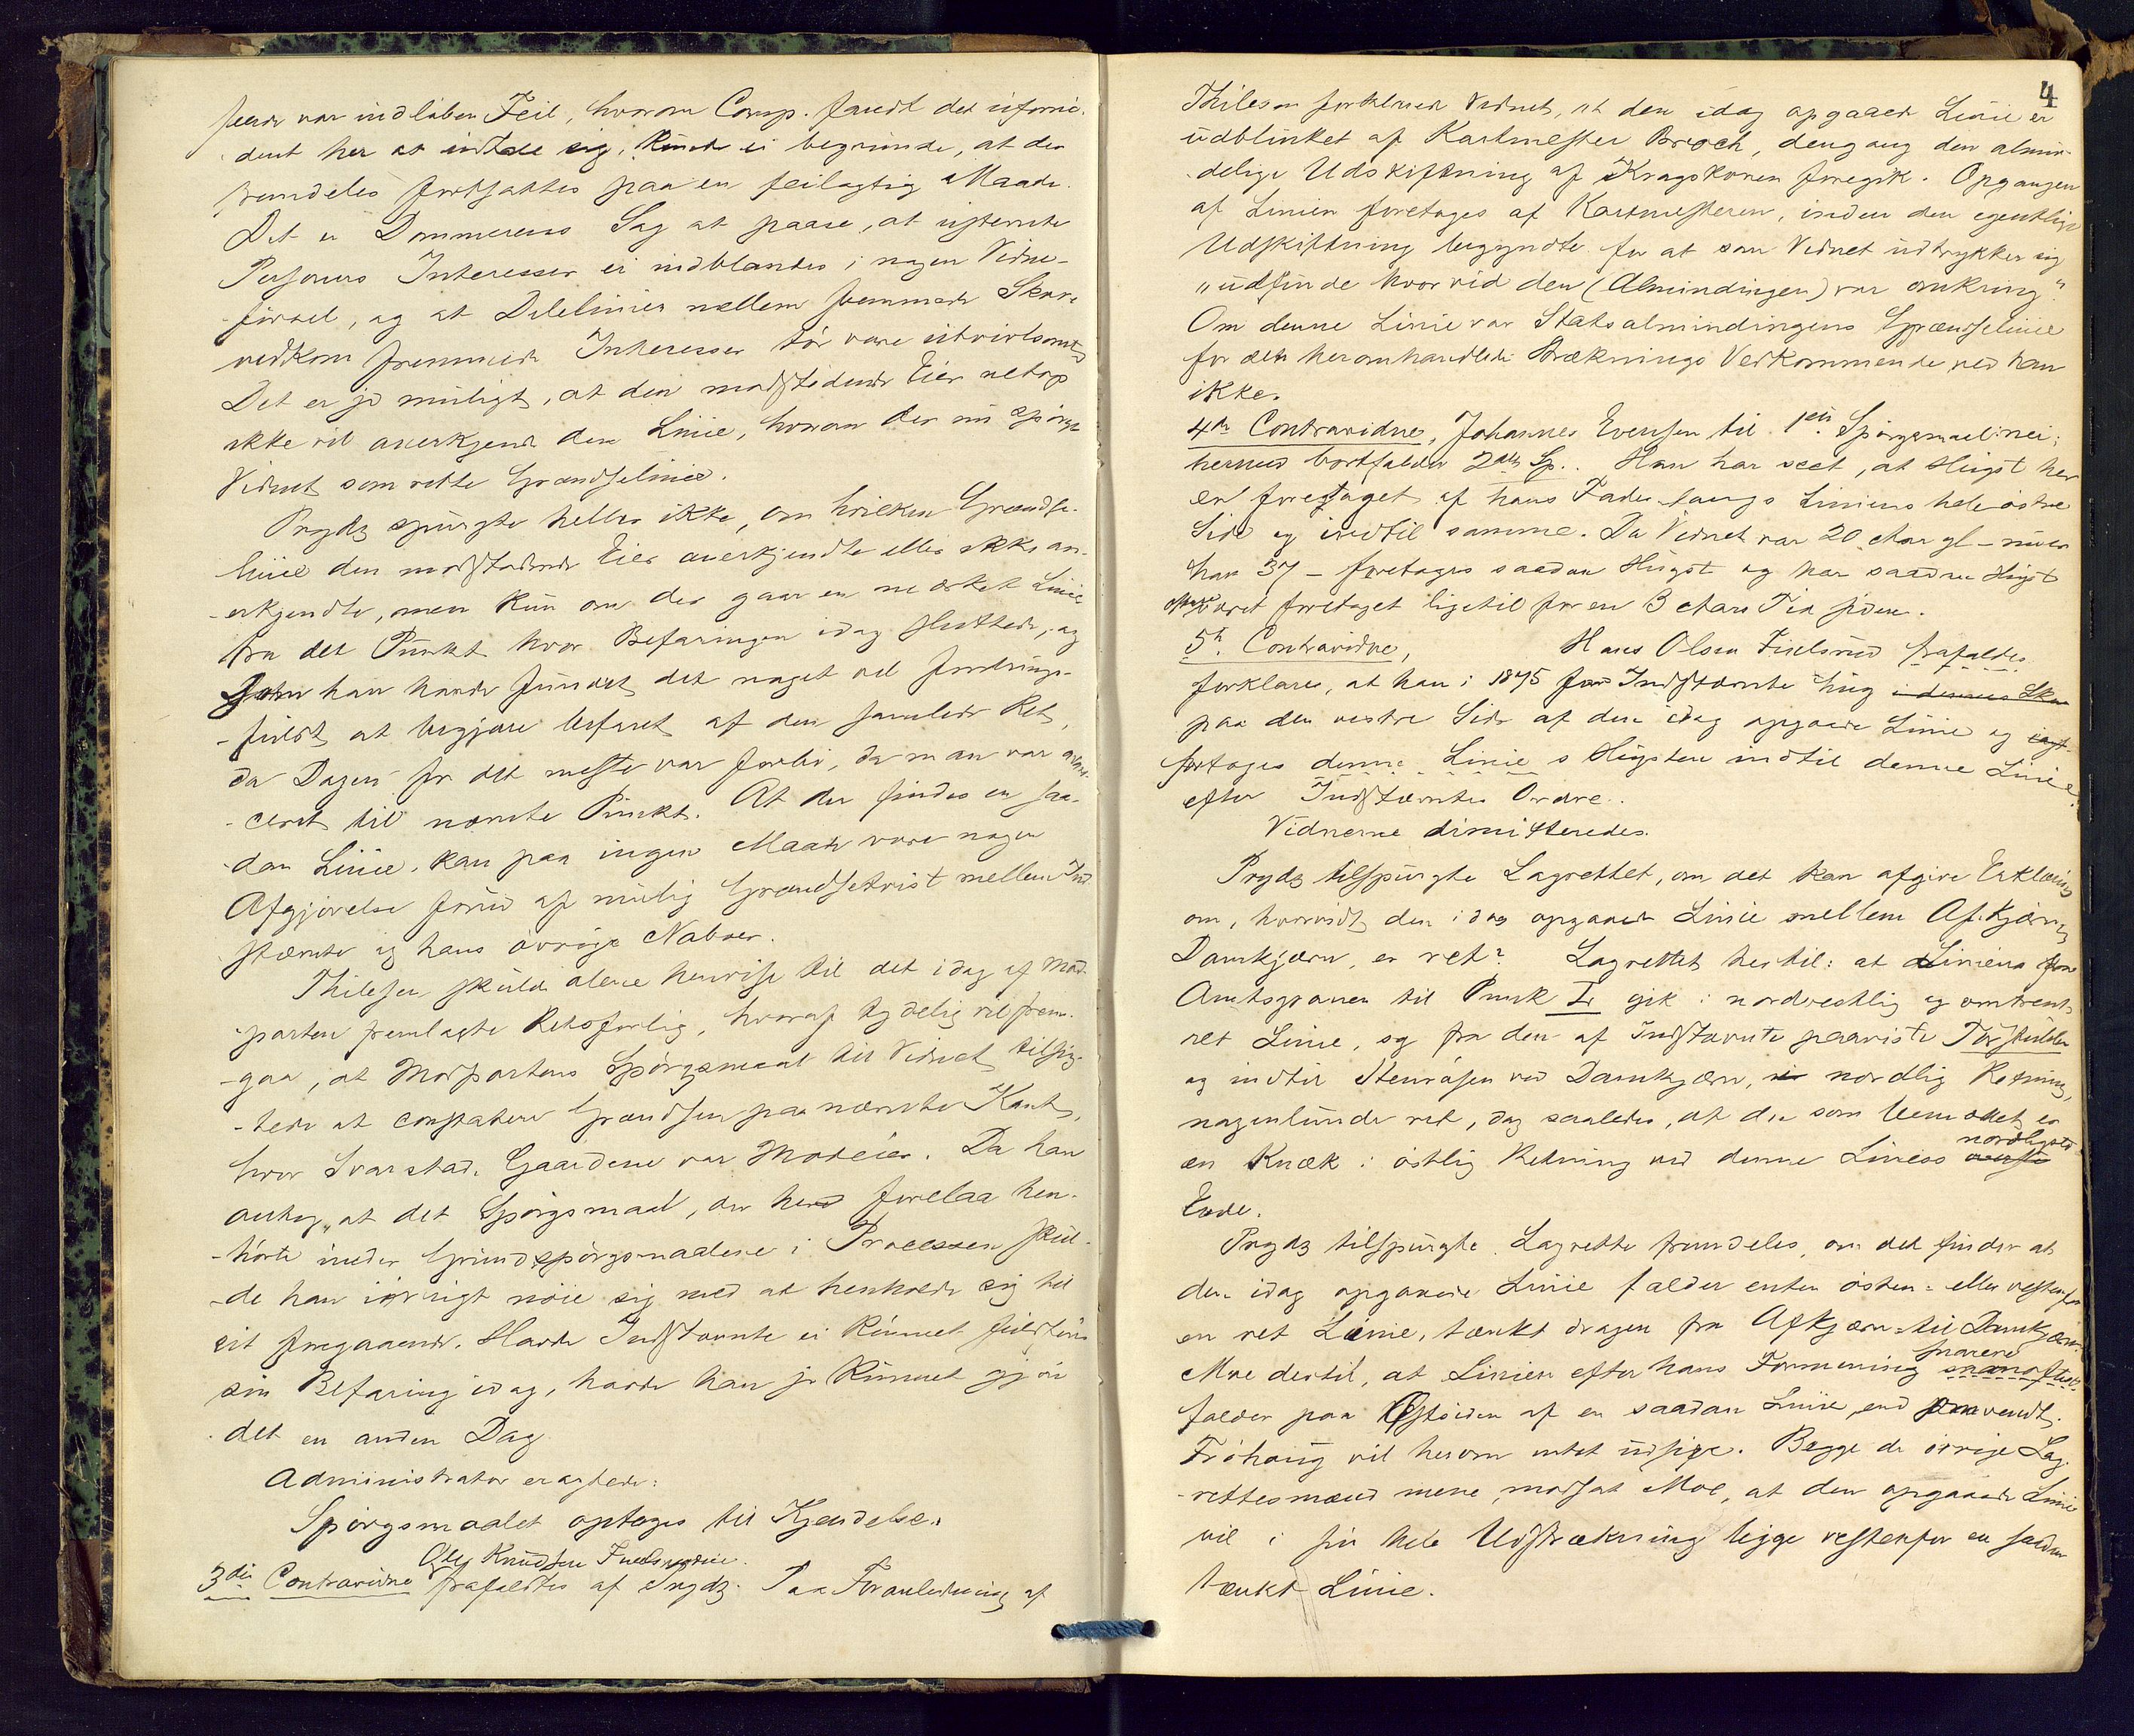 var indløben Feil, hvorom Comp. fandt det uforno-
dent her at indlade sig, kunde ei begrunde, at der
fremdeles fortsattes paa en feilagtig Maade.
Det er Dommerens Sag at paase, at ustevnte
Personers Interesser ei indblandes i nogen Vidne-
førsel, og at Delelinier mellem fremmede Skove
vedkom fremmede Interesser tør være utvivlsomt
Det er jo muligt, at den modstødende Eier netop
ikke vil anerkjende den Linie, hvorom der nu spørges
Vidnet som rette Grændselinie.
Prydz spurgte heller ikke, om hvilken Grændse-
linie den modstødende Eier anerkjendte eller ikke an-
erkjendte, men kun om der gaar en mærket Linie
fra det Punkt hvor Befaringen idag sluttede, og
som han havde fundet det noget vel fordrings-
fuldt at begjære befaret af den samlede Ret,
da Dagen for det meste var forbi, da man var avan-
ceret til nævnte Punkt. At der findes en saa-
dan Linie, kan paa ingen Maade være nogen
Afgjørelse forud af mulig Grændsetvist mellem Ind-
stævnte og hans øvrige Naboer.
Thilesen skulde alene henvise til det idag af Mod-
parten fremlagte Retsforlig, hvoraf tydelig vil frem-
gaa, at Modpartens Spørgsmaal til Vidnet tilsig-
tede at constatere Grændsen paa nævnte Kant,
hvor Svarstad Gaardene var Modeier. Da han
antog, at det Spørgsmaal, der her forelaa hen-
hørte under Grundspørgsmaalene i Processen skul-
de han iøvrigt nøie sig med at henholde sig til
sit foregaaende. Havde Indstævnte ei kunnet fuldføre
sin Befaring idag, havde han jo kunnet gjøre
det en anden Dag
Administrator eragtede:
Spørgsmaalet optages til Kjendelse.
Ole Knudsen
3die Contravidne frafaldtes af Prydz. Paa Foranledning af
4
Thilesen forklarede Vidnet, at den idag opgaaede Linie er
udblinket af Kartmester Broch, dengang den almin-
delige Udskiftning af Kragskoven foregik. Opgangen
af Linien foretoges af Kartmesteren, inden den egentlige
Udskiftning begyndte for at som Vidnet udtrykker sig
"udfinde hvor vid den (Almindingen) var omkring".
Om denne Linie var Statsalmindingens Grændselinie
for den heromhandlede Stræknings Vedkommende, ved han
ikke.
4de Contravidne, Johannes Evensen til 1ste Spørgsmaal: nei;
hermed bortfalder 2det Sp.. Han har seet, at Hugst her
er foretaget af hans Fader langs Liniens hele østre
Side og indtil samme. Da Vidnet var 20 Aar gl - nu er
han 37 - foretoges saadan Hugst og har saadan Hugst
været foretaget ligetil for en 3 Aars Tid siden.
5te Contravidne, Hans Olsen Fuelsrud frafaldes
forklarer, at han i 1875 for Indstævnte hug i dennes Skov
paa den vestre Side af den idag opgaaede Linie og
foretoges denne Linies Hugsten indtil denne Linie
efter Indstævntes Ordre.
Vidnerne dimitteredes.
Prydz tilspurgte Lagrettet, om det kan afgive Erklæring
om, hvorvidt den idag opgaaede Linie mellem Afkjærn og
Damkjærn, er ret? Lagrettet hertil: at Linien fra
Amtsgranen til Punk I. gik i nordvestlig og omtrent
ret Linie, og fra den af Indstævnte paaviste Tørfulden
og indtil Stenrøsen ved Damkjærn, i nordlig Retning,
nogenlunde ret, dog saaledes, at der som bemærket er
en Knæk i østlig Retning ved denne Linies nordligste
Ende.
Prydz tilspurgte Lagrettet fremdeles, om det finder at
den idag opgaaede Linie falder enten østen- eller vestenfor
en ret Linie, tænkt dragen fra Afkjærn til Damkjærn.
Moe dertil, at Linien efter hans Formening snarere
falder paa Østsiden af en saadan Linie, end omvendt.
Frøhaug vil herom intet udsige. Begge de øvrige Lag-
rettesmænd mene, modsat Moe, at den opgaaede Linie
vil i sin hele Udstrækning ligge vestenfor en saadan
tænkt Linie.